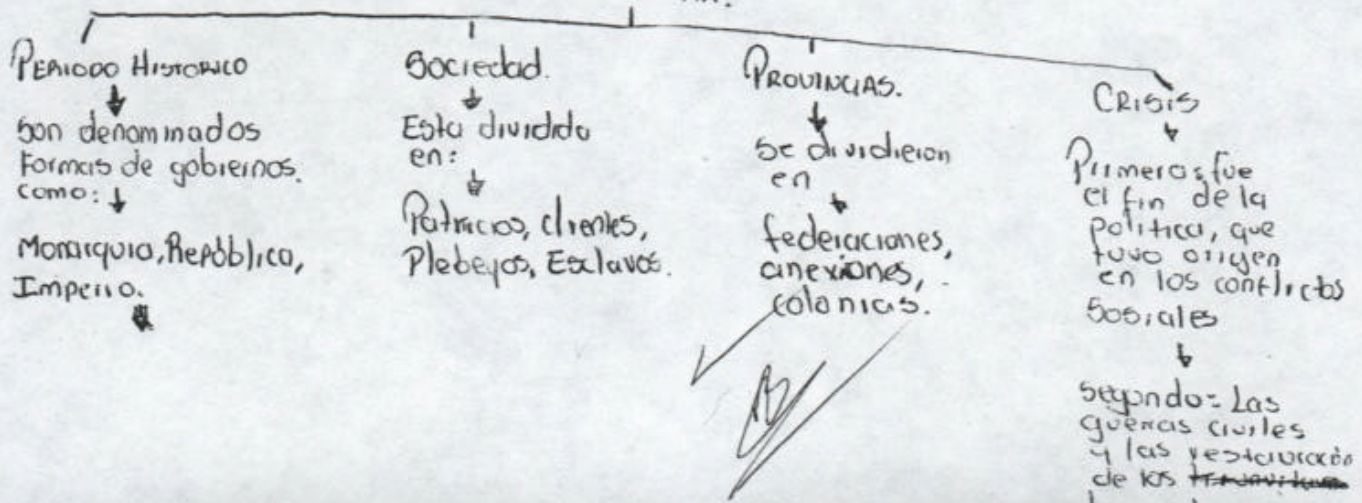 PERIODO HISTORICO
son denominados
Formas de gobiernos.
como:
Monarquia, República,
Imperio.
Sociedad.
Esta dividida
en:
Patricios, clientes,
Plebeyos, Esclavos.
PROVINCIAS.
se dividieron
en
federaciones,
anexiones,
colonias.
CRISIS
Primeros fue
el fin de la
politica, que
tuvo origen
en los conflictos
sosiales
segundo= Las
guerras civiles
y las restauración
de los